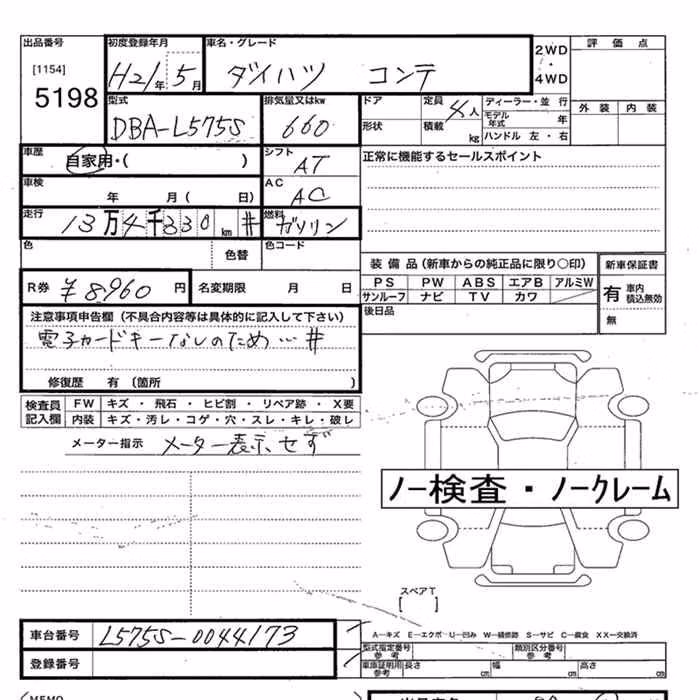 出品番号 初度登録年月 車名・グレード 2WD・4WD 評価点
[1154]
5198 H21年5月 ダイハツ コンテ
型式 排気量又はkw ドア 定員 4人 ディーラー・並行 外装 内装
DBA-L575S 660 形状 積載 kg モデル年式 年
ハンドル 左・右
車歴 自家用・( ) シフト AT 正常に機能するセールスポイント
車検 年 月( 日) AC AC
走行 13万4千330km # 燃料 ガソリン
色 色替 色コード
装備品(新車からの純正品に限り○印) 新車保証書
R券 ¥8,960円 名変期限 月 日 PS PW ABS エアB アルミW 有 車内積込無効
サンルーフ ナビ TV カワ
後日品 無
注意事項申告欄(不具合内容等は具体的に記入して下さい)
電子カードキーなしのため… #
修復歴 有〔箇所 〕
検査員記入欄 FW キズ・飛石・ヒビ割・リペア跡・X要
内装 キズ・汚レ・コゲ・穴・スレ・キレ・破レ
メーター指示 メーター表示せず
ノー検査・ノークレーム
スペアT
[ ]
車台番号 L575S-0044173 A―キズ E―エクボ U―凹み W―補修跡 S―サビ C―腐食 XX―交換済
型式指定番号 参考 類別区分番号 参考
登録番号 車庫証明用 参考 長さ cm 幅 cm 高さ cm
MEMO